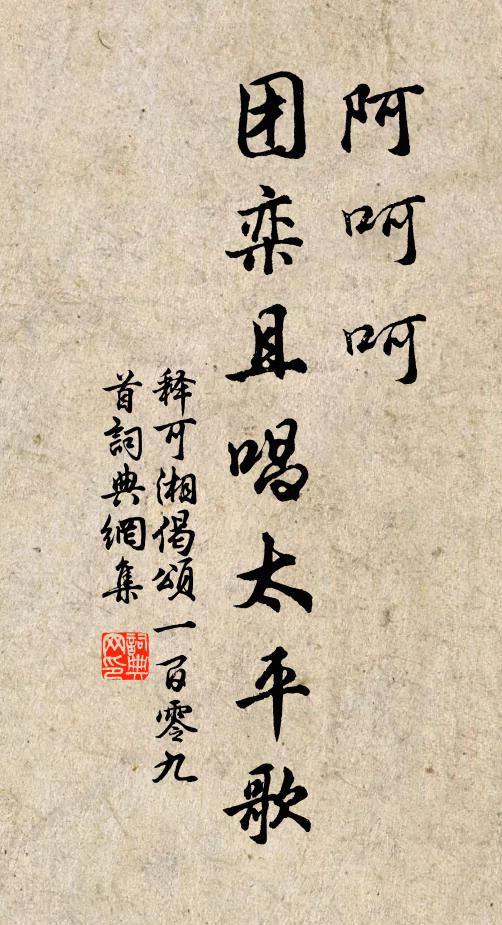 阿呵呵
团栾且唱太平歌
释可湘偈頌一百零九
首詞典網集
詞典
网印